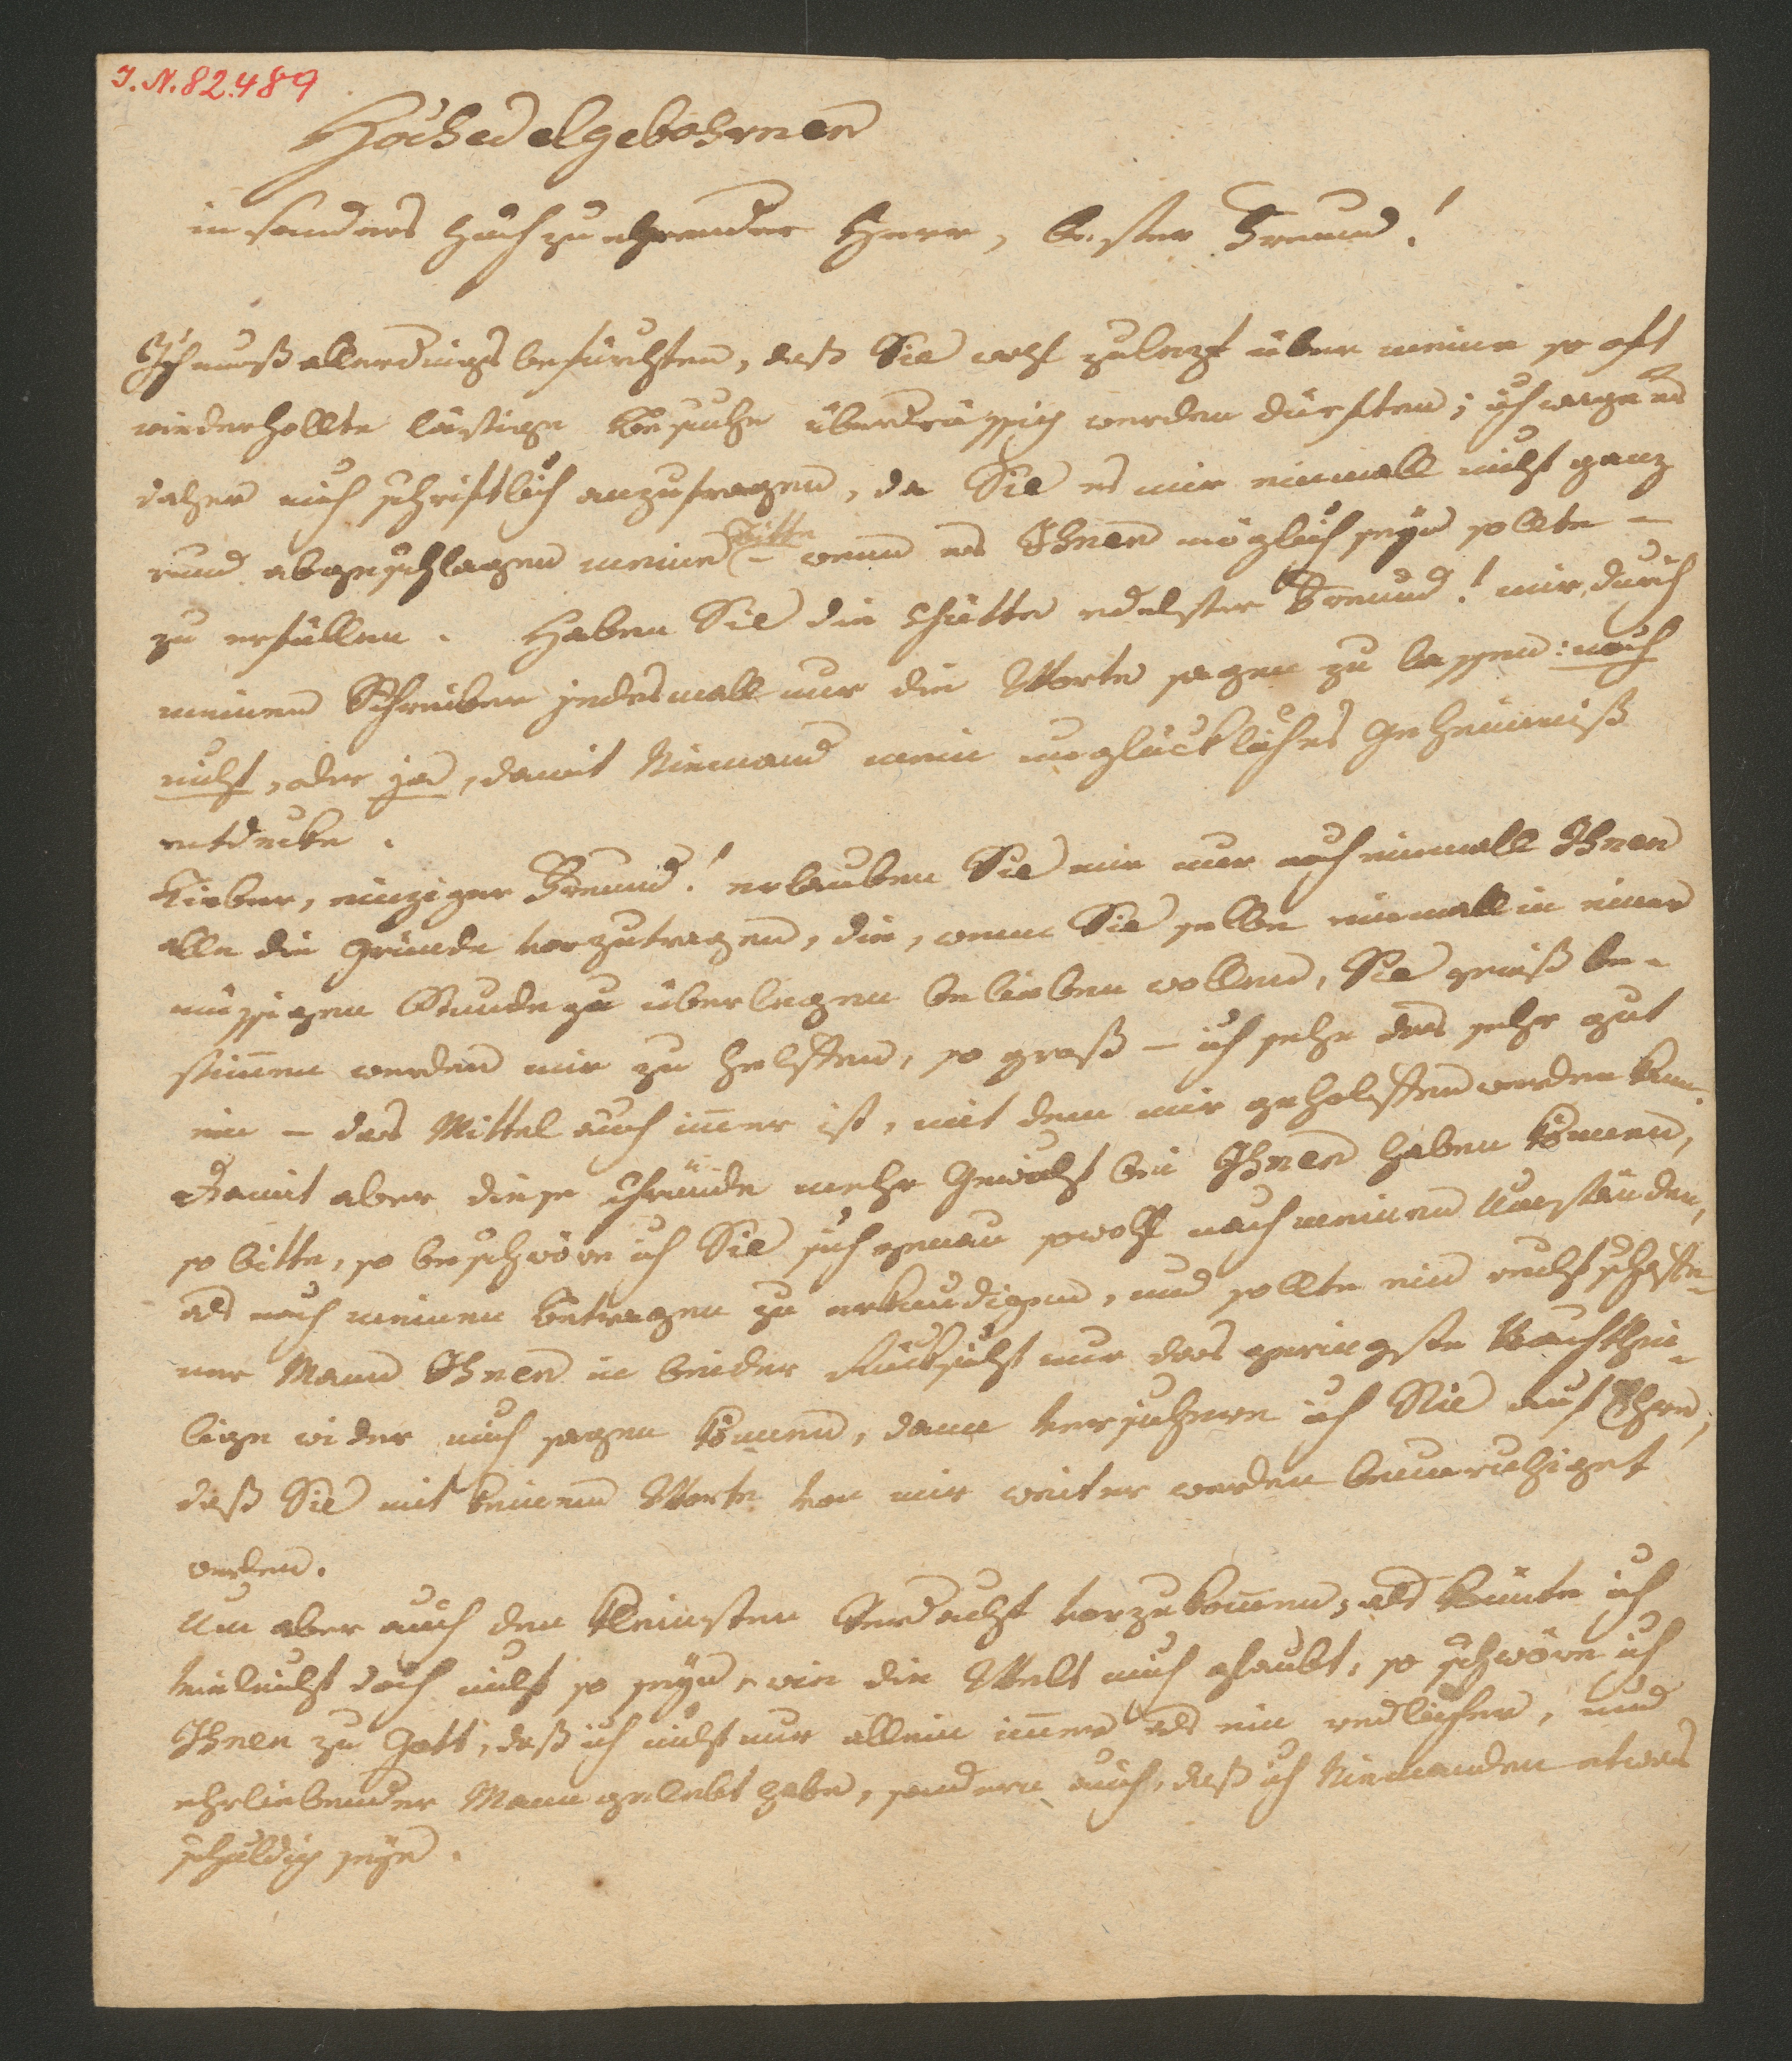 I. N. 82.489
Hochedelgebohrnen
insonders hochzuehrender Herr, bester Freund!
Ich muß allerdings befürchten, daß Sie wohl zulezt über meine so oft
wiederhollte lästige Besuche überdrüssig werden dürften; ich wage es
daher mich schriftlich anzufragen, da Sie es mir einmall nicht ganz
rund abgeschlagen meine Bitte – wenn es Ihnen möglich seyn sollte –
zu erfüllen. Haben Sie die Gütte edelster Freund! mir durch
meinen Schreiber jedesmall nur die Worte sagen zu lassen: noch
nicht, oder ja, damit Niemand mein unglückliches Geheimniß
entdecke.
Lieber, einziger Freund! erlauben Sie mir nur noch einmall Ihnen
alle die Gründe vorzutragen, die, wenn Sie selbe einmall in einer
müssigen Stunde zu überlegen belieben wollen, Sie gewiß be-
stim̅en werden mir zu helffen, so groß – ich sehe das sehr gut
ein – das Mittel auch im̅er ist, mit dem mir geholffen werden kann.
Damit aber diese Gründe mehr Gewicht bei Ihnen haben können,
so bitte, so beschwöre ich Sie sich genau sowohl nach meinen Umständen,
als nach meinen Betragen zu erkundigen, und sollte ein rechtschaffe-
ner Mann Ihnen in beider Rücksicht nur das geringste Nachthei-
lige wider mich sagen können, dann versichere ich Sie auf Ehre,
daß Sie mit keinem Worte von mir weiter werden beunruhiget
werden.
Um aber auch den kleinsten Verdacht vorzukom̅en, als könnte ich
vieleicht doch nicht so seyn, wie die Welt mich glaubt, so schwöre ich
Ihnen zu Gott, daß ich nicht nur allein im̅er als ein redlicher, und
ehrliebender Mann gelebt habe, sondern auch, daß ich Niemanden etwas
schuldig seye.